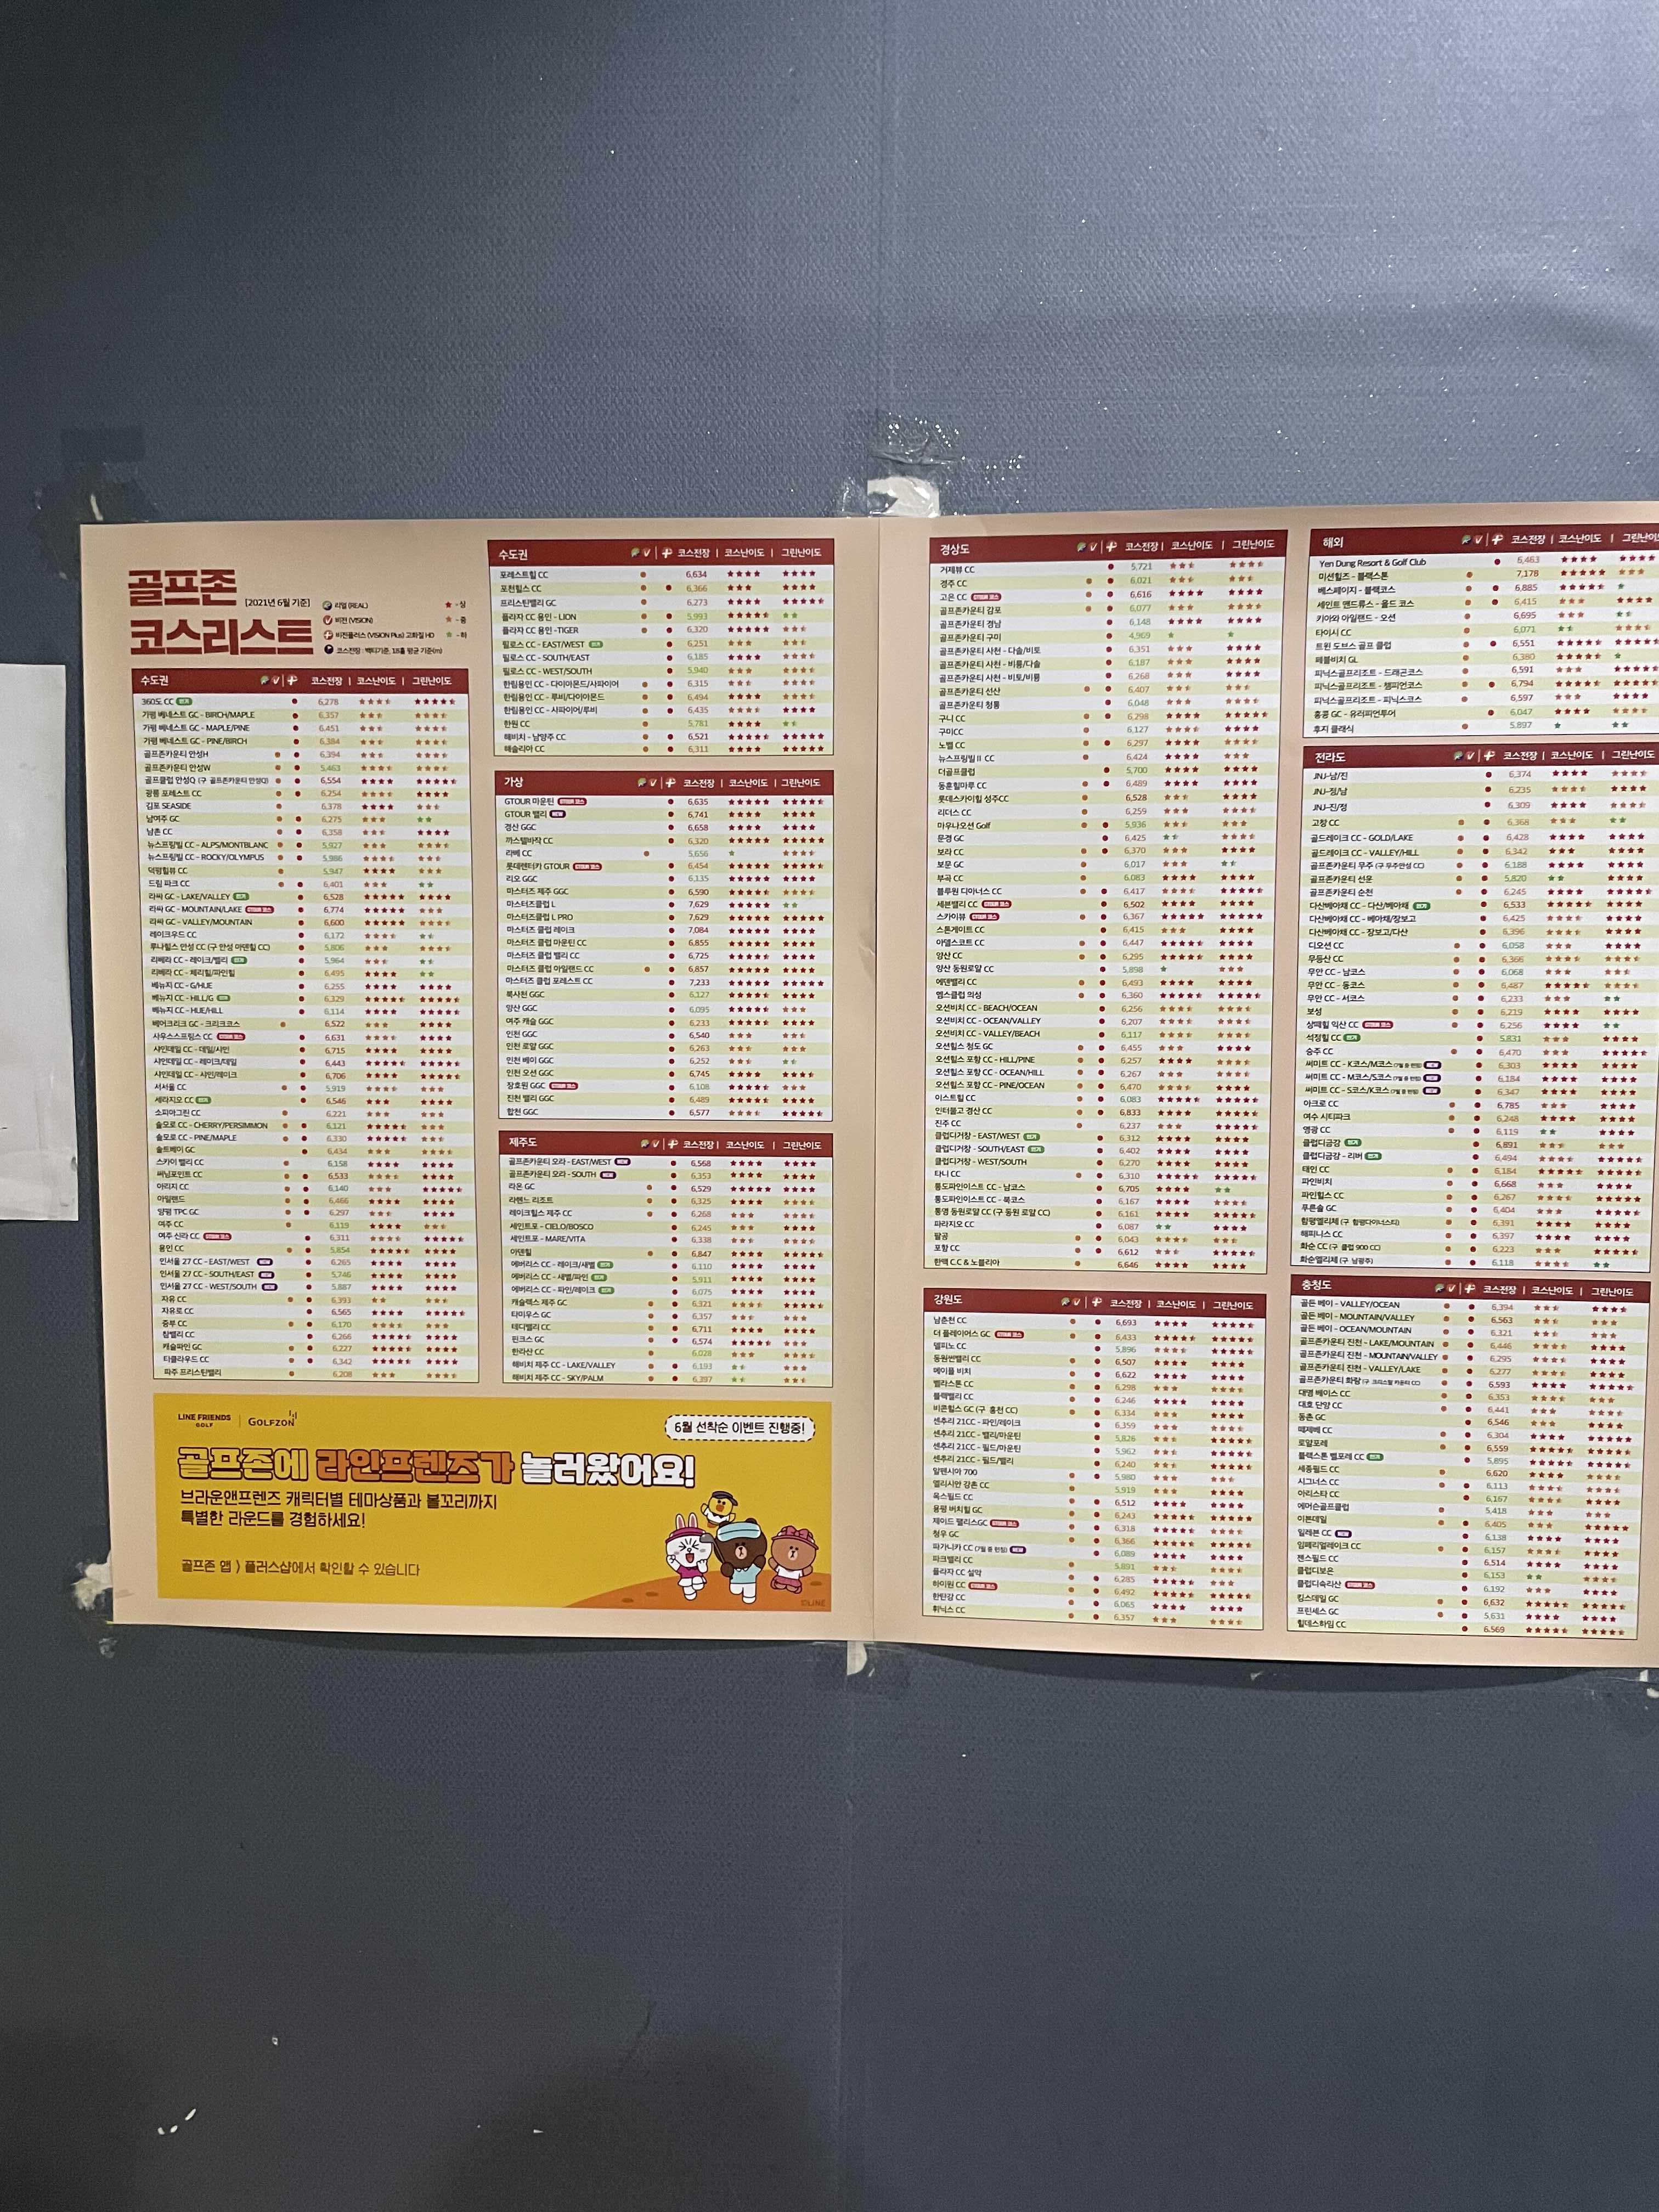 골프존
코스리스트
[2021년 6월 기준]
리얼 (REAL)
비전 (VISION)
비전플러스 (VISION Plus) 고화질 HD
코스전장 : 백티기준, 18홀 평균 기준(m)
★ -상
★ -중
★ -하
수도권 코스전장 | 코스난이도 | 그린난이도
360도 CC 6,278
가평 베네스트 GC - BIRCH/MAPLE 6,357
가평 베네스트 GC - MAPLE/PINE 6,451
가평 베네스트 GC - PINE/BIRCH 6,384
골프존카운티 안성H 6,394
골프존카운티 안성W 5,463
골프클럽 안성Q (구 골프존카운티 안성Q) 6,554
광릉 포레스트 CC 6,254
김포 SEASIDE 6,378
남여주 GC 6,275
남촌 CC 6,358
뉴스프링빌 CC - ALPS/MONTBLANC 5,927
뉴스프링빌 CC - ROCKY/OLYMPUS 5,986
덕평힐뷰 CC 5,947
드림 파크 CC 6,401
라싸 GC - LAKE/VALLEY 6,528
라싸 GC - MOUNTAIN/LAKE GTOUR 코스 6,774
라싸 GC - VALLEY/MOUNTAIN 6,600
레이크우드 CC 6,172
루나힐스 안성 CC (구 안성 아덴힐 CC) 5,806
리베라 CC - 레이크/밸리 5,964
리베라 CC - 체리힐/파인힐 6,495
베뉴지 CC - G/HUE 6,255
베뉴지 CC - HILL/G 6,329
베뉴지 CC - HUE/HILL 6,114
베어크리크 GC - 크리크코스 6,522
사우스스프링스 CC GTOUR 코스 6,631
샤인데일 CC - 데일/샤인 6,715
샤인데일 CC - 레이크/데일 6,443
샤인데일 CC - 샤인/레이크 6,706
서서울 CC 5,919
세라지오 CC 6,546
소피아그린 CC 6,221
솔모로 CC - CHERRY/PERSIMMON 6,121
솔모로 CC - PINE/MAPLE 6,330
솔트베이 GC 6,434
스카이 밸리 CC 6,158
써닝포인트 CC 6,533
아리지 CC 6,140
아일랜드 6,466
양평 TPC GC 6,297
여주 CC 6,119
여주 신라 CC GTOUR 코스 6,311
용인 CC 5,854
인서울 27 CC - EAST/WEST NEW 6,265
인서울 27 CC - SOUTH/EAST NEW 5,746
인서울 27 CC - WEST/SOUTH NEW 5,887
자유 CC 6,393
자유로 CC 6,565
중부 CC 6,170
참밸리 CC 6,266
캐슬파인 GC 6,227
타클라우드 CC 6,342
파주 프리스틴밸리 6,208
수도권 코스전장 | 코스난이도 | 그린난이도
포레스트힐 CC 6,634
포천힐스 CC 6,366
프리스틴밸리 GC 6,273
플라자 CC 용인 - LION 5,993
플라자 CC 용인 -TIGER 6,320
필로스 CC - EAST/WEST 6,251
필로스 CC - SOUTH/EAST 6,185
필로스 CC - WEST/SOUTH 5,940
한림용인 CC - 다이아몬드/사파이어 6,315
한림용인 CC - 루비/다이아몬드 6,494
한림용인 CC - 사파이어/루비 6,435
한원 CC 5,781
해비치 - 남양주 CC 6,521
해솔리아 CC 6,311
가상 코스전장 | 코스난이도 | 그린난이도
GTOUR 마운틴 GTOUR 코스 6,635
GTOUR 밸리 NEW 6,741
경산 GGC 6,658
까스텔바작 CC 6,320
라베 CC 5,656
롯데렌터카 GTOUR GTOUR 코스 6,454
리오 GGC 6,135
마스터즈 제주 GGC 6,590
마스터즈클럽 L 7,629
마스터즈클럽 L PRO 7,629
마스터즈 클럽 레이크 7,084
마스터즈 클럽 마운틴 CC 6,855
마스터즈 클럽 밸리 CC 6,725
마스터즈 클럽 아일랜드 CC 6,857
마스터즈 클럽 포레스트 CC 7,233
북사천 GGC 6,127
양산 GGC 6,095
여주 캐슬 GGC 6,233
인천 GGC 6,540
인천 로얄 GGC 6,263
인천 베이 GGC 6,252
인천 오션 GGC 6,745
장호원 GGC GTOUR 코스 6,108
진천 밸리 GGC 6,489
합천 GGC 6,577
제주도 코스전장 | 코스난이도 | 그린난이도
골프존카운티 오라 - EAST/WEST NEW 6,568
골프존카운티 오라 - SOUTH NEW 6,353
라온 GC 6,529
라헨느 리조트 6,325
레이크힐스 제주 CC 6,268
세인트포 - CIELO/BOSCO 6,245
세인트포 - MARE/VITA 6,338
아덴힐 6,847
에버리스 CC - 레이크/새별 6,110
에버리스 CC - 새별/파인 5,911
에버리스 CC - 파인/레이크 6,075
캐슬렉스 제주 GC 6,321
타미우스 GC 6,357
테디밸리 CC 6,711
핀크스 GC 6,574
한라산 CC 6,028
해비치 제주 CC - LAKE/VALLEY 6,193
해비치 제주 CC - SKY/PALM 6,397
LINE FRIENDS GOLF | GOLFZON
6월 선착순 이벤트 진행중!
골프존에 라인프렌즈가 놀러왔어요!
브라운앤프렌즈 캐릭터별 테마상품과 볼꼬리까지
특별한 라운드를 경험하세요!
골프존 앱 > 플러스샵에서 확인할 수 있습니다
©LINE
경상도 코스전장 | 코스난이도 | 그린난이도
거제뷰 CC 5,721
경주 CC 6,021
고은 CC GTOUR 코스 6,616
골프존카운티 감포 6,077
골프존카운티 경남 6,148
골프존카운티 구미 4,969
골프존카운티 사천 - 다솔/비토 6,351
골프존카운티 사천 - 비룡/다솔 6,187
골프존카운티 사천 - 비토/비룡 6,268
골프존카운티 선산 6,407
골프존카운티 청통 6,048
구니 CC 6,298
구미CC 6,127
노벨 CC 6,297
뉴스프링빌 II CC 6,424
더골프클럽 5,700
동훈힐마루 CC 6,489
롯데스카이힐 성주CC 6,528
리더스 CC 6,259
마우나오션 Golf 5,936
문경 GC 6,425
보라 CC 6,370
보문 GC 6,017
부곡 CC 6,083
블루원 디아너스 CC 6,417
세븐밸리 CC GTOUR 코스 6,502
스카이뷰 GTOUR 코스 6,367
스톤게이트 CC 6,415
아델스코트 CC 6,447
양산 CC 6,295
양산 동원로얄 CC 5,898
에덴밸리 CC 6,493
엠스클럽 의성 6,360
오션비치 CC - BEACH/OCEAN 6,256
오션비치 CC - OCEAN/VALLEY 6,207
오션비치 CC - VALLEY/BEACH 6,117
오션힐스 청도 GC 6,455
오션힐스 포항 CC - HILL/PINE 6,257
오션힐스 포항 CC - OCEAN/HILL 6,267
오션힐스 포항 CC - PINE/OCEAN 6,470
이스트힐 CC 6,083
인터불고 경산 CC 6,833
진주 CC 6,237
클럽디거창 - EAST/WEST 6,312
클럽디거창 - SOUTH/EAST 6,402
클럽디거창 - WEST/SOUTH 6,270
타니 CC 6,310
통도파인이스트 CC - 남코스 6,705
통도파인이스트 CC - 북코스 6,167
통영 동원로얄 CC (구 동원 로얄 CC) 6,161
파라지오 CC 6,087
팔공 6,043
포항 CC 6,612
한맥 C.C & 노블리아 6,646
강원도 코스전장 | 코스난이도 | 그린난이도
남춘천 CC 6,693
더 플레이어스 GC GTOUR 코스 6,433
델피노 CC 5,896
동원썬밸리 CC 6,507
메이플 비치 6,622
벨라스톤 CC 6,298
블랙밸리 CC 6,246
비콘힐스 GC (구 홍천 CC) 6,334
센추리 21CC - 파인/레이크 6,359
센추리 21CC - 밸리/마운틴 5,826
센추리 21CC - 필드/마운틴 5,962
센추리 21CC - 필드/밸리 6,240
알펜시아 700 5,980
엘리시안 강촌 CC 5,919
옥스필드 CC 6,512
용평 버치힐 GC 6,243
제이드 팰리스GC GTOUR 코스 6,318
청우 GC 6,366
파가니카 CC (7월 중 런칭) NEW 6,089
파크밸리 CC 5,891
플라자 CC 설악 6,285
하이원 CC GTOUR 코스 6,492
한탄강 CC 6,065
휘닉스 CC 6,357
해외 코스전장 | 코스난이도 | 그린난이도
Yen Dung Resort & Golf Club 6,463
미션힐즈 - 블랙스톤 7,178
베스페이지 - 블랙코스 6,885
세인트 앤드류스 - 올드 코스 6,415
키아와 아일랜드 - 오션 6,695
타이시 CC 6,071
트윈 도브스 골프 클럽 6,551
페블비치 GL 6,380
피닉스골프리조트 - 드래곤코스 6,591
피닉스골프리조트 - 챔피언코스 6,794
피닉스골프리조트 - 피닉스코스 6,597
홍콩 GC - 유러피언투어 6,047
후지 클래식 5,897
전라도 코스전장 | 코스난이도 | 그린난이도
JNJ-남/진 6,374
JNJ-정/남 6,235
JNJ-진/정 6,309
고창 CC 6,368
골드레이크 CC - GOLD/LAKE 6,428
골드레이크 CC - VALLEY/HILL 6,342
골프존카운티 무주 (구 무주안성 CC) 6,188
골프존카운티 선운 5,820
골프존카운티 순천 6,245
다산베아채 CC - 다산/베아채 6,533
다산베아채 CC - 베아채/장보고 6,425
다산베아채 CC - 장보고/다산 6,396
디오션 CC 6,058
무등산 CC 6,366
무안 CC - 남코스 6,068
무안 CC - 동코스 6,487
무안 CC - 서코스 6,233
보성 6,219
상떼힐 익산 CC GTOUR 코스 6,256
석정힐 CC 5,831
승주 CC 6,470
써미트 CC - K코스/M코스 (7월 중 런칭) NEW 6,303
써미트 CC - M코스/S코스 (7월 중 런칭) NEW 6,184
써미트 CC - S코스/K코스 (7월 중 런칭) NEW 6,347
아크로 CC 6,785
여수 시티파크 6,248
영광 CC 6,119
클럽디금강 6,891
클럽디금강 - 리버 6,494
태인 CC 6,184
파인비치 6,668
파인힐스 CC 6,267
푸른솔 GC 6,404
함평엘리체 (구 함평다이너스티) 6,391
해피니스 CC 6,397
화순 CC (구 클럽 900 CC) 6,223
화순엘리체 (구 남광주) 6,118
충청도 코스전장 | 코스난이도 | 그린난이도
골든 베이 - VALLEY/OCEAN 6,394
골든 베이 - MOUNTAIN/VALLEY 6,563
골든 베이 - OCEAN/MOUNTAIN 6,321
골프존카운티 진천 - LAKE/MOUNTAIN 6,446
골프존카운티 진천 - MOUNTAIN/VALLEY 6,295
골프존카운티 진천 - VALLEY/LAKE 6,277
골프존카운티 화랑 (구 크리스탈 카운티 CC) 6,593
대영 베이스 CC 6,353
대호 단양 CC 6,441
동촌 GC 6,546
떼제베 CC 6,304
로얄포레 6,559
블랙스톤 벨포레 CC 5,895
세종필드 CC 6,620
시그너스 CC 6,113
아리스타 CC 6,167
에머슨골프클럽 5,418
이븐데일 6,405
일레븐 CC NEW 6,138
임페리얼레이크 CC 6,157
젠스필드 CC 6,514
클럽디보은 6,153
클럽디속리산 GTOUR 코스 6,192
킹스데일 GC 6,632
프린세스 GC 5,631
힐데스하임 CC 6,569